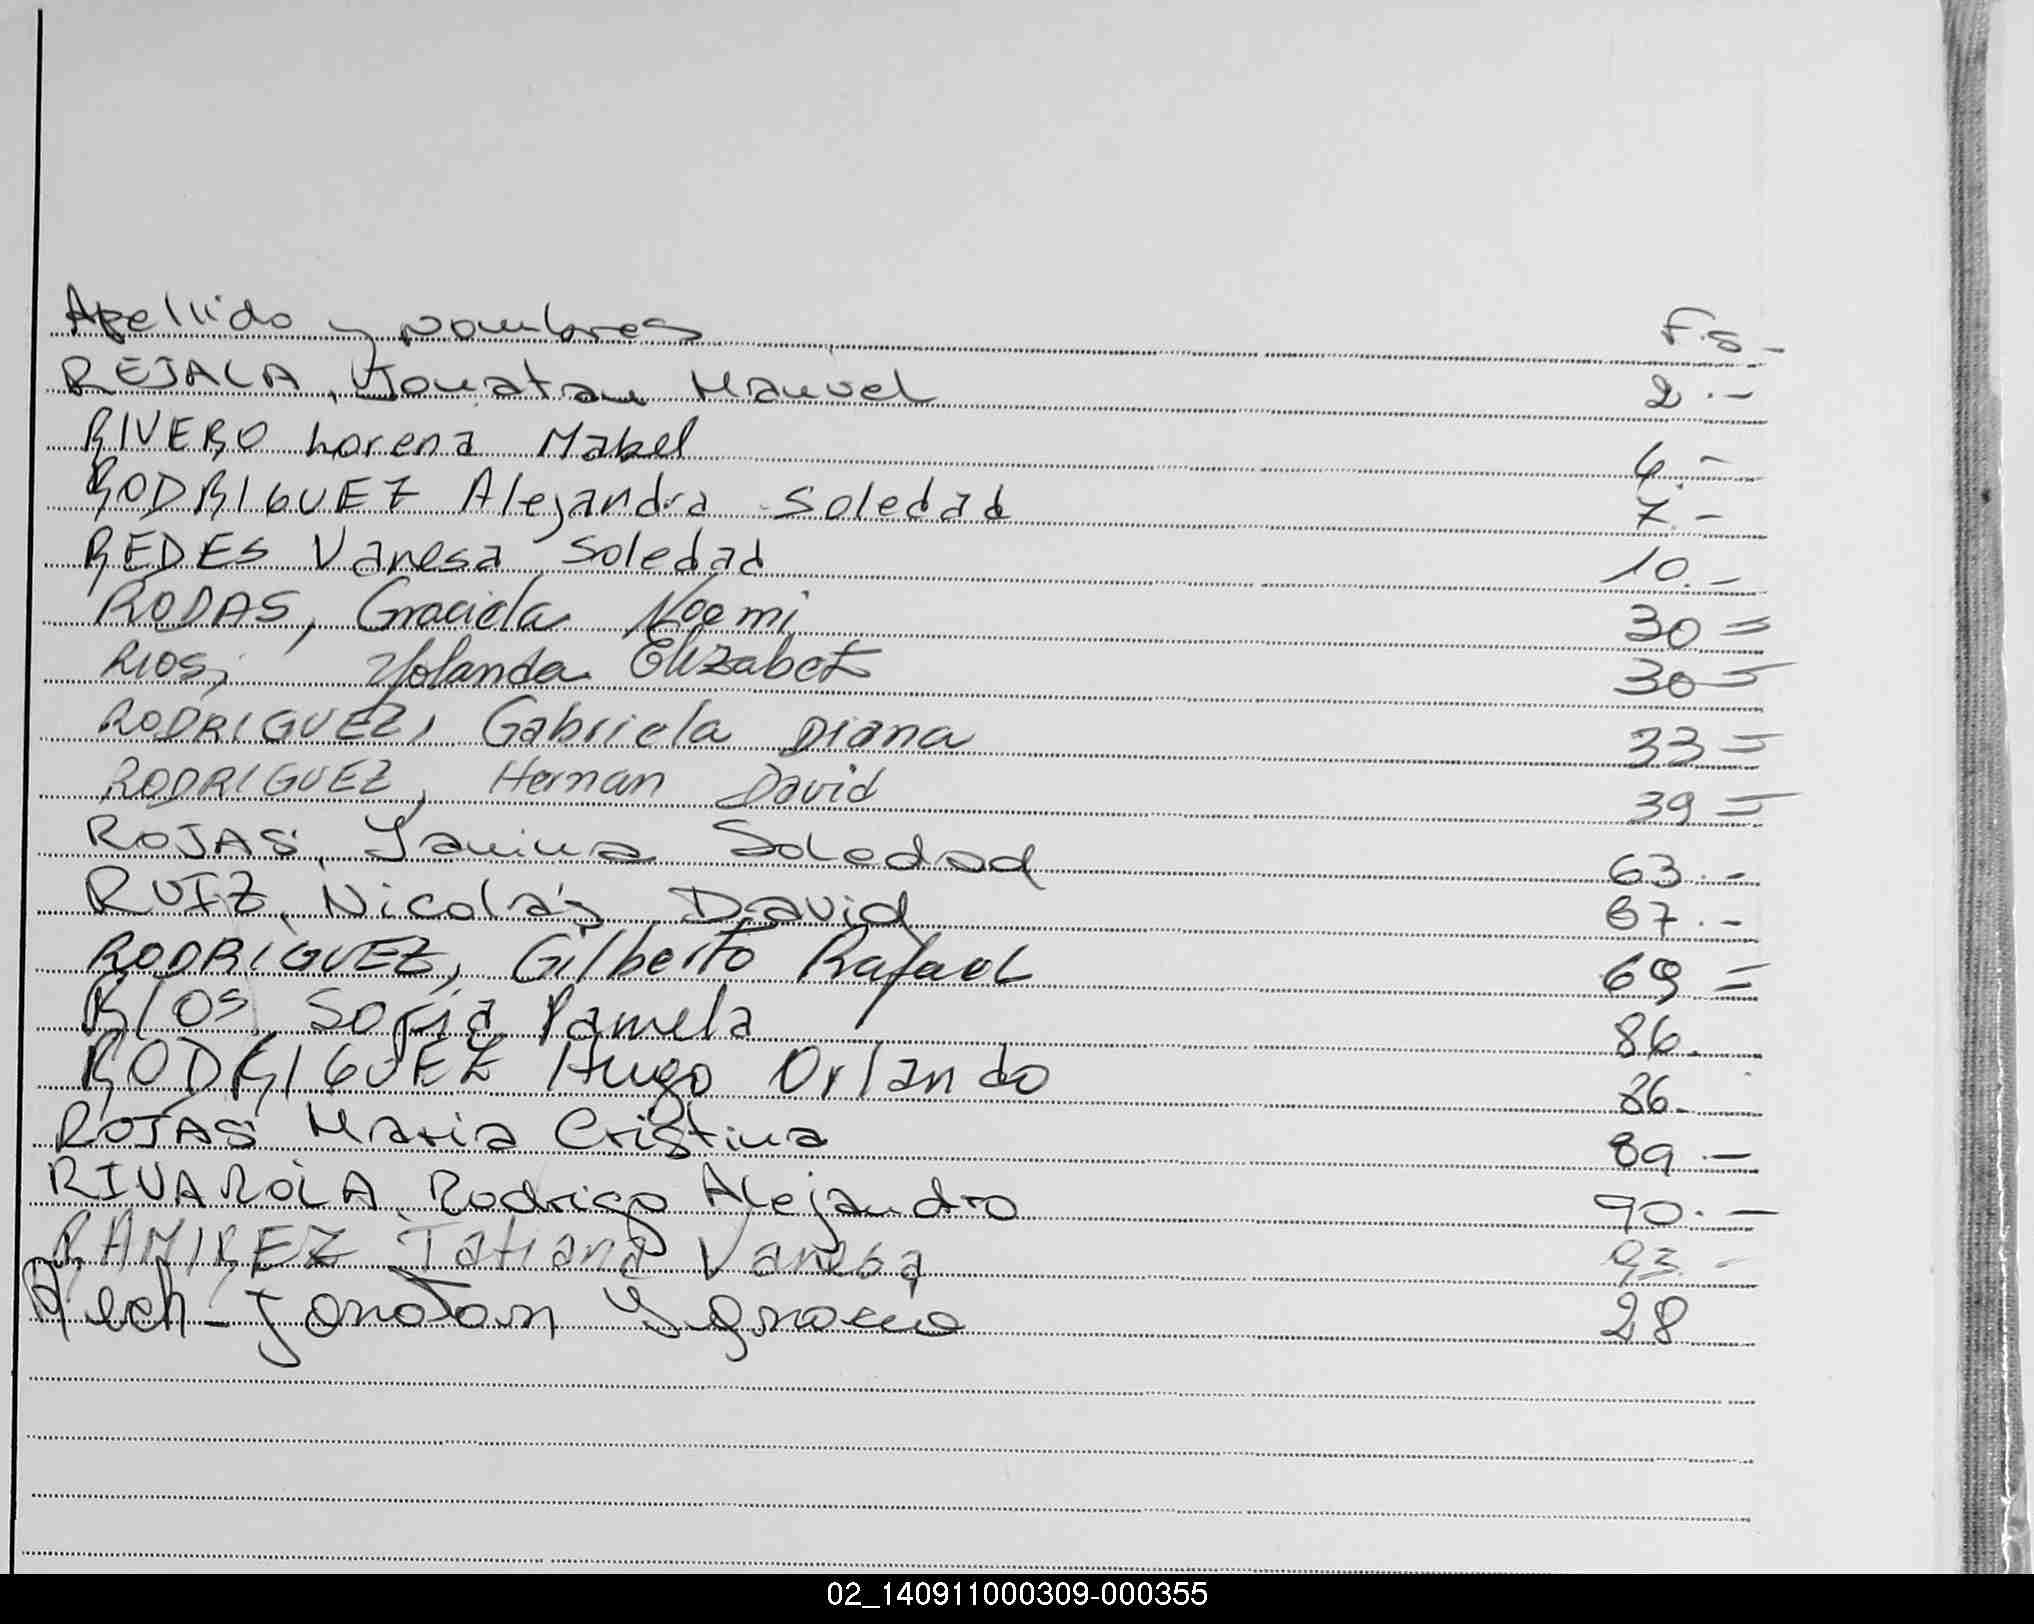 Apellido y nombres F.s-
REJALA, Jonatan Manuel 2.-
RIVERO Lorena Mabel 6.-
RODRIGUEZ Alejandra Soledad 7.-
REDES Vanesa Soledad 10.-
RODAS, Graciela Noemi 30=
RIOS, Yolanda Elizabet 30=
RODRIGUEZ, Gabriela Diana 33=
RODRIGUEZ, Hernan David 39=
ROJAS, Yanina Soledad 63.-
RUIZ, Nicolás David 67.-
RODRIGUEZ, Gilberto Rafael 69=
RIOS Sofia Pamela 86.
RODRIGUEZ Hugo Orlando 86.
ROJAS Maria Cristina 89.-
RIVAROLA, Rodrigo Alejandro 90.-
RAMIREZ Tatiana Vanesa 93.-
Jonatan Ygnacio 28
02_140911000309-000355